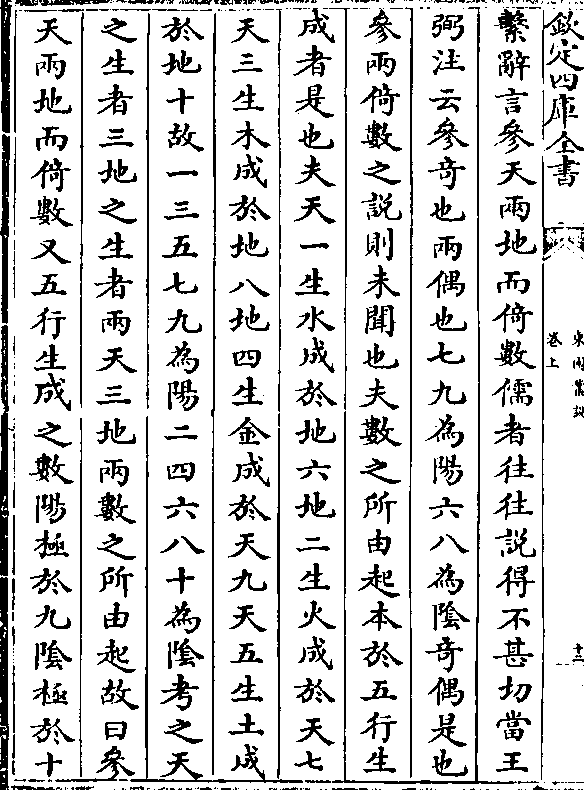 欽定四庫全書
卷上
十二
繫辭言參天兩地而倚數儒者往往説得不甚切當王
弼注云參奇也兩偶也七九為陽六八為隂奇偶是也
參兩倚數之説則未聞也夫數之所由起本於五行生
成者是也夫天一生水成於地六地二生火成於天七
天三生木成於地八地四生金成於天九天五生土成
於地十故一三五七九為陽二四六八十為隂考之天
之生者三地之生者兩天三地兩數之所由起故曰參
天兩地而倚數又五行生成之數陽極於九隂極於十